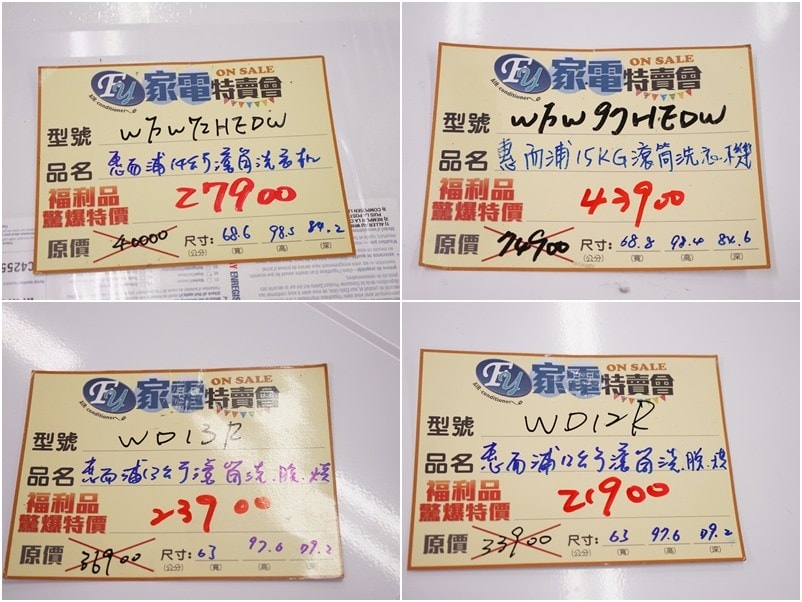 FY 家電特賣會 ON SALE
AIR conditioner
型號 WFW72HEDW
品名 惠而浦14公斤滾筒洗衣机
福利品 驚爆特價 27900
原價 40000 尺寸:(公分) 68.6(寬) 98.5(高) 84.2(深)
FY 家電特賣會 ON SALE
AIR conditioner
型號 WFW97HEDW
品名 惠而浦15KG滾筒洗衣機
福利品 驚爆特價 43900
原價 74900 尺寸:(公分) 68.8(寬) 98.4(高) 84.6(深)
FY 家電特賣會 ON SALE
AIR conditioner
型號 WD13R
品名 惠而浦13公斤滾筒洗.脫.烘
福利品 驚爆特價 23900
原價 36900 尺寸:(公分) 63(寬) 97.6(高)
FY 家電特賣會 ON SALE
AIR conditioner
型號 WD12R
品名 惠而浦12公斤滾筒洗.脫.烘
福利品 驚爆特價 21900
原價 33900 尺寸:(公分) 63(寬) 97.6(高)